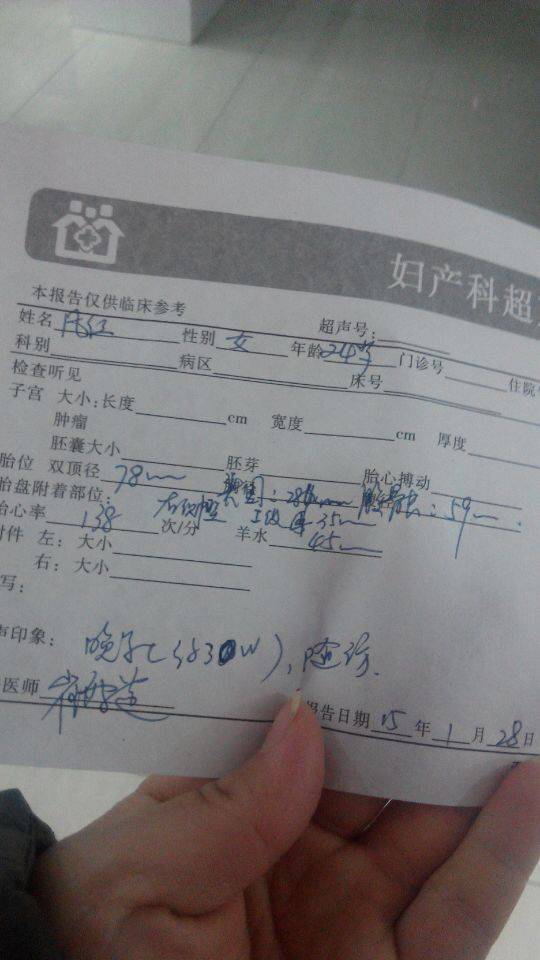 妇产科超
本报告仅供临床参考 超声号:
姓名 红 性别 女 年龄 24岁 门诊号 住院
科别 病区 床号
检查所见
子宫 大小:长度 cm 宽度 cm 厚度
肿瘤
胚囊大小 胚芽 胎心搏动
胎位 双顶径 78mm 头围: 股骨长: 59mm.
胎盘附着部位: 后 35mm
胎心率 138 次/分 羊水 45mm
附件 左: 大小
右: 大小
写:
声印象: 晚孕(约30W), 随访.
医师 报告日期 15 年 1 月 28 日